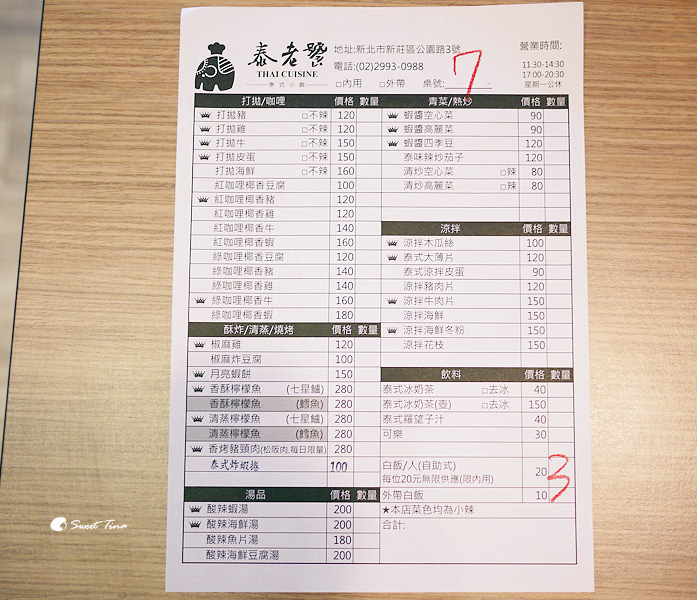 泰老饕
THAI CUISINE
泰式小館
地址:新北市新莊區公園路3號
電話:(02)2993-0988
□內用 □外帶 桌號: 7
營業時間:
11:30-14:30
17:00-20:30
星期一公休
打拋/咖哩 價格 數量
打拋豬 □不辣 120
打拋雞 □不辣 120
打拋牛 □不辣 150
打拋皮蛋 □不辣 150
打拋海鮮 □不辣 160
紅咖哩椰香豆腐 100
紅咖哩椰香豬 120
紅咖哩椰香雞 120
紅咖哩椰香牛 140
紅咖哩椰香蝦 160
綠咖哩椰香豆腐 120
綠咖哩椰香豬 140
綠咖哩椰香雞 140
綠咖哩椰香牛 160
綠咖哩椰香蝦 180
酥炸/清蒸/燒烤 價格 數量
椒麻雞 120
椒麻炸豆腐 100
月亮蝦餅 150
香酥檸檬魚 (七星鱸) 280
香酥檸檬魚 (鱈魚) 280
清蒸檸檬魚 (七星鱸) 280
清蒸檸檬魚 (鱈魚) 280
香烤豬頸肉(松阪肉,每日限量) 280
泰式炸蝦捲 100
湯品 價格 數量
酸辣蝦湯 200
酸辣海鮮湯 200
酸辣魚片湯 180
酸辣海鮮豆腐湯 200
青菜/熱炒 價格 數量
蝦醬空心菜 90
蝦醬高麗菜 90
蝦醬四季豆 120
泰味辣炒茄子 120
清炒空心菜 □辣 80
清炒高麗菜 □辣 80
涼拌 價格 數量
涼拌木瓜絲 100
泰式大薄片 120
泰式涼拌皮蛋 90
涼拌豬肉片 120
涼拌牛肉片 150
涼拌海鮮 150
涼拌海鮮冬粉 150
涼拌花枝 150
飲料 價格 數量
泰式冰奶茶 □去冰 40
泰式冰奶茶(壺) □去冰 150
泰式羅望子汁 40
可樂 30
白飯/人(自助式) 20 3
每位20元無限供應(限內用)
外帶白飯 10
★本店菜色均為小辣
合計:
Sweet Tina